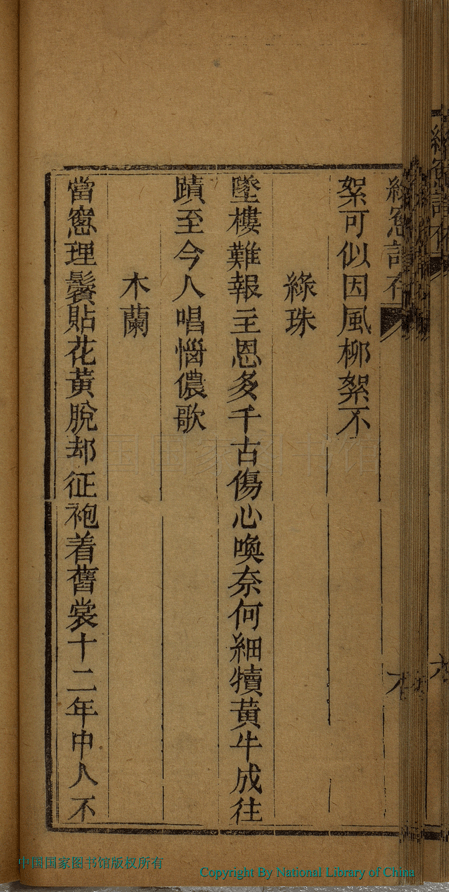 絮可似因風柳絮不
綠珠
墜樓難報主恩多千古傷心喚奈何細犢黃牛成往
蹟至今人唱懊儂歌
木蘭
當窻理鬢貼花黃脫却征袍着舊裳十二年中人不
中国国家图书馆版权所有
Copyright By National Library of China